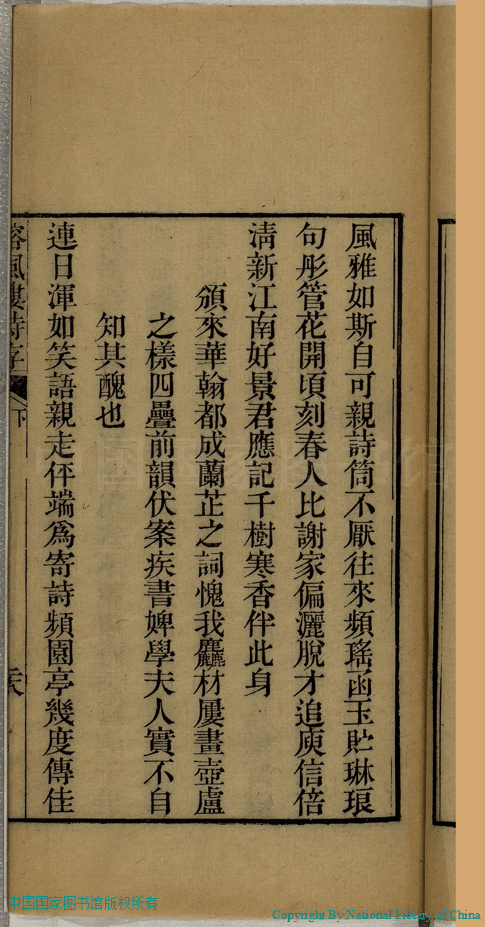 風雅如斯自可親詩筒不厭往來頻瑤函玉貯琳琅
句彤管花開頃刻春人比謝家偏灑脫才追庾信倍
淸新江南好景君應記千樹寒香伴此身
頒來華翰都成蘭芷之詞愧我麤材屢畫壺盧
之樣四疊前韻伏案疾書婢學夫人實不自
知其醜也
連日渾如笑語親走伻端爲寄詩頻園亭幾度傳佳
風樓詩存
下
中国国家图书馆版权所有
Copyright By National Library of China